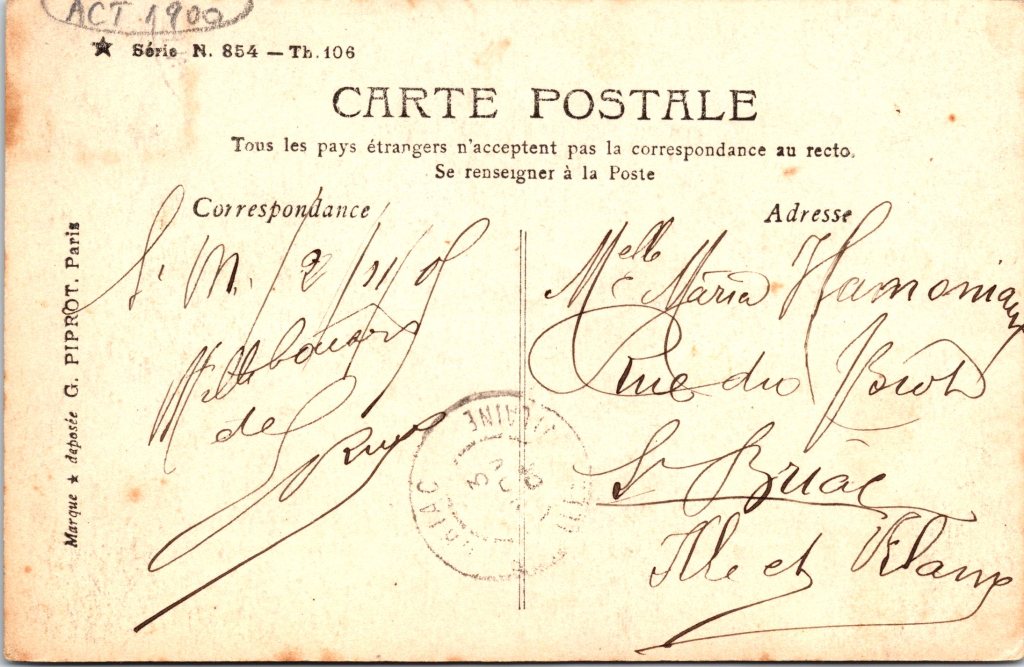 ACT. 1900
★ Série N. 854 — Th. 106
CARTE POSTALE
Tous les pays étrangers n'acceptent pas la correspondance au recto.
Se renseigner à la Poste
Correspondance
S. M. 2/11/05
de
Marque ★ déposée G. PIPROT. Paris
Adresse
Melle Maria Hamoniaux
Rue du
St Briac
Ille et Vilaine
BRIAC
ILLE VILAINE